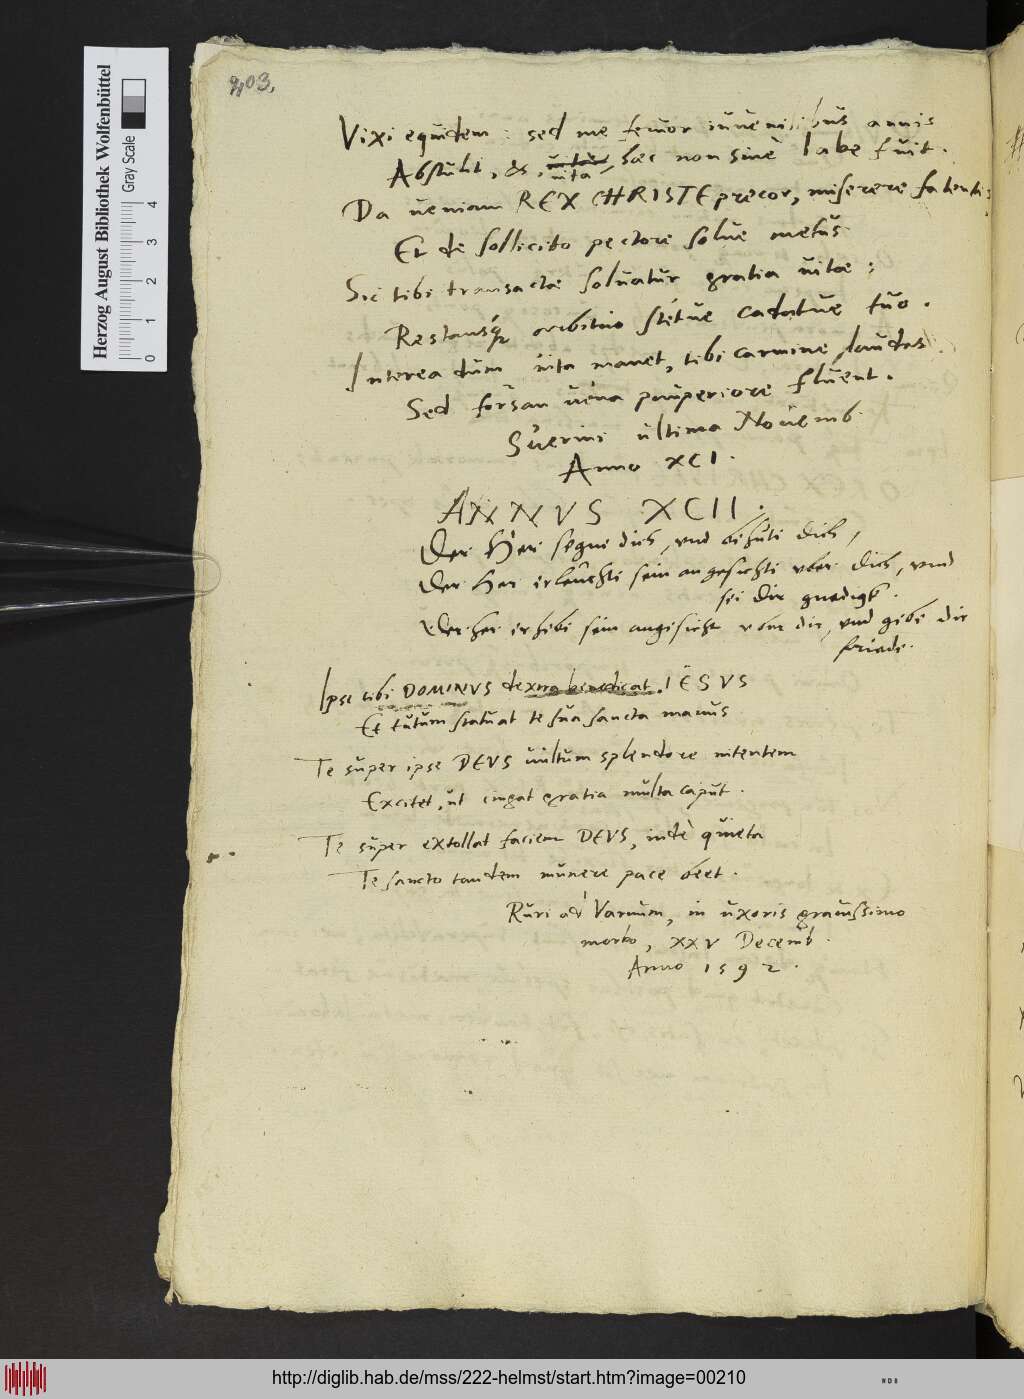 203.
Vixi equidem: sed me feruor iuuenilibus annis
Abstulit, & uita haec non sine labe fuit.
Da ueniam REX CHRISTE precor, miserere fatentis,
Et de sollicito pectore solue metus.
Sic tibi transactae soluatur gratia uitae;
Restansq́ arbitrio stetue cadatue tuo.
Interea dum uita manet, tibi carmine laudes
Sed forsan uena pauperiore fluent.
Suerini ultima Nouemb.
Anno XCI.
ANNVS XCII.
Der Her segne dich, vnd behuti dich,
Der Her erleuchti sein angesichti vber dich, vnd
sei dir gnedigk.
Der her erhebe sein angesicht vber dir, vnd gebe dir
friede.
Ipse tibi DOMINVS dextra benedicat IESVS
Et tutum statuat te sua sancta manus
Te super ipse DEVS uultum splendore nitentem
Excitet, ut cingat gratia multa caput.
Te super extollat faciem DEVS, inde quieta
Te sancto tandem munere pace beet.
Ruri ad Varnum, in uxoris grauissimo
morbo, XXV Decemb.
Anno 1592.
Herzog August Bibliothek Wolfenbüttel
Gray Scale
0 1 2 3 4
http://diglib.hab.de/mss/222-helmst/start.htm?image=00210